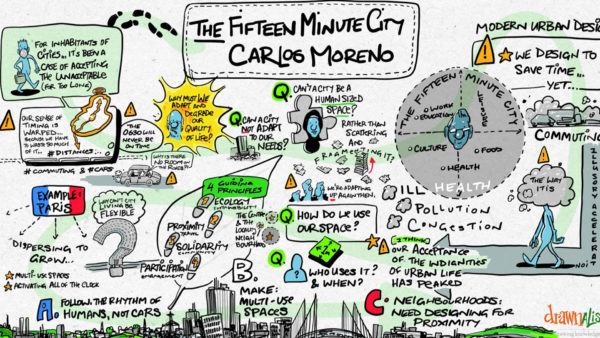 THE FIFTEEN MINUTE CITY
CARLOS MORENO
FOR INHABITANTS OF
CITIES... IT'S BEEN A
CASE OF ACCEPTING
THE UNACCEPTABLE
(FOR TOO LONG)
OUR SENSE OF
TIMING IS
WARPED...
BECAUSE WE HAVE
TO WASTE SO MUCH
OF IT...
#DISTANCES...
THE 0630 WILL
NEVER BE
ON TIME
# COMMUTING & #CARS
WHY IS THERE
NO ROOM ON
THE ROADS?
WHY MUST WE
ADAPT AND
DEGRADE OUR
QUALITY OF
LIFE?
Q CAN A CITY
NOT ADAPT
TO OUR
NEEDS?
Q CAN'T A CITY BE A
HUMAN SIZED
SPACE?
RATHER THAN
SCATTERING
AND
FRAGMENTING IT
WE'RE ADAPTING
MODERN URBAN DESIG
WE DESIGN TO
SAVE TIME...
YET...
THE FIFTEEN MINUTE CITY
WORK
EDUCATION
CULTURE
FOOD
HEALTH
COMMUTING
ILLUSORY ACCELERAT
THE WAY
IT IS
ILL HEALTH
POLLUTION
CONGESTION
EXAMPLE:
PARIS
WHY CAN'T CITY
LIVING BE
FLEXIBLE
DISPERSING TO
GROW...
MULTI-USE SPACES
ACTIVATING ALL OF THE CLOCK
4 GUIDING
PRINCIPLES
ECOLOGY
SUSTAINABILITY
PROXIMITY
SOLIDARITY
PARTICIPATION
Q HOW DO WE USE
OUR SPACE?
Q WHO USES IT?
& WHEN?
I THINK
OUR ACCEPTANCE
OF THE INDIGNITIES
OF URBAN LIFE
HAS PEAKED
A. FOLLOW THE RHYTHM OF
HUMANS, NOT CARS
B.
MAKE:
MULTI-USE
SPACES
C. NEIGHBOURHOODS:
NEED DESIGNING FOR
PROXIMITY
drawnalis